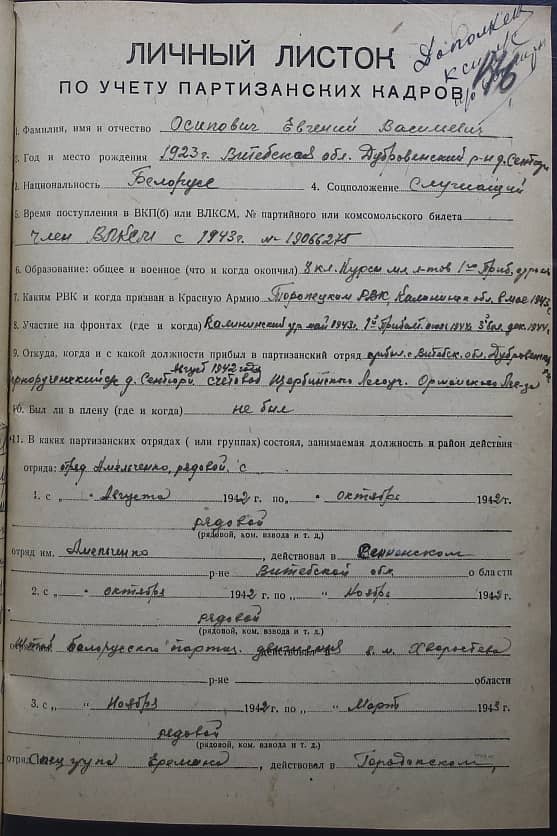 ЛИЧНЫЙ ЛИСТОК
ПО УЧЕТУ ПАРТИЗАНСКИХ КАДРОВ
1. Фамилия, имя и отчество Осипович Евгений Василевич
2. Год и место рождения 1923 г. Витебская обл. Дубровенский р-н д.
3. Национальность Белорус 4. Соцположение Служащий
5. Время поступления в ВКП(б) или ВЛКСМ, № партийного или комсомольского билета
член ВЛКСМ с 1943 г. № 19066275
6. Образование: общее и военное (что и когда окончил) кл. Курсы мл. л-тов 1ый Приб.
7. Каким РВК и когда призван в Красную Армию Торопецким РВК, Калининск обл. в мае 1943
8. Участие на фронтах (где и когда) Калининский май 1943 г. 1й Прибалт. 1944 3й дек. 1944
9. Откуда, когда и с какой должности прибыл в партизанский отряд прибыл с Витебск. обл. Дубровенск
август 1942 года
д. счетовод
10. Был ли в плену (где и когда) не был
11. В каких партизанских отрядах ( или группах) состоял, занимаемая должность и район действия
отряда: отряд Амельченко, рядовой, с
1. с „ " Августа 1942 г. по „ " октябрь 1942 г.
рядовой
(рядовой, ком. взвода и т. д.)
отряд им. Амельченко, действовал в Сенненском
р-не Витебской обл. области
2. с „ " октября 1942 г. по „ " Ноябрь 1942 г.
рядовой
(рядовой, ком. взвода и т. д.)
Штаб Белорусского партиз. движения в. м. Хворостева
р-не области
3. с „ " Ноября 1942 г. по „ " Март 1943 г.
рядовой
(рядовой, ком. взвода и т. д.)
отряд Спецгрупа Еремина, действовал в Городокском,